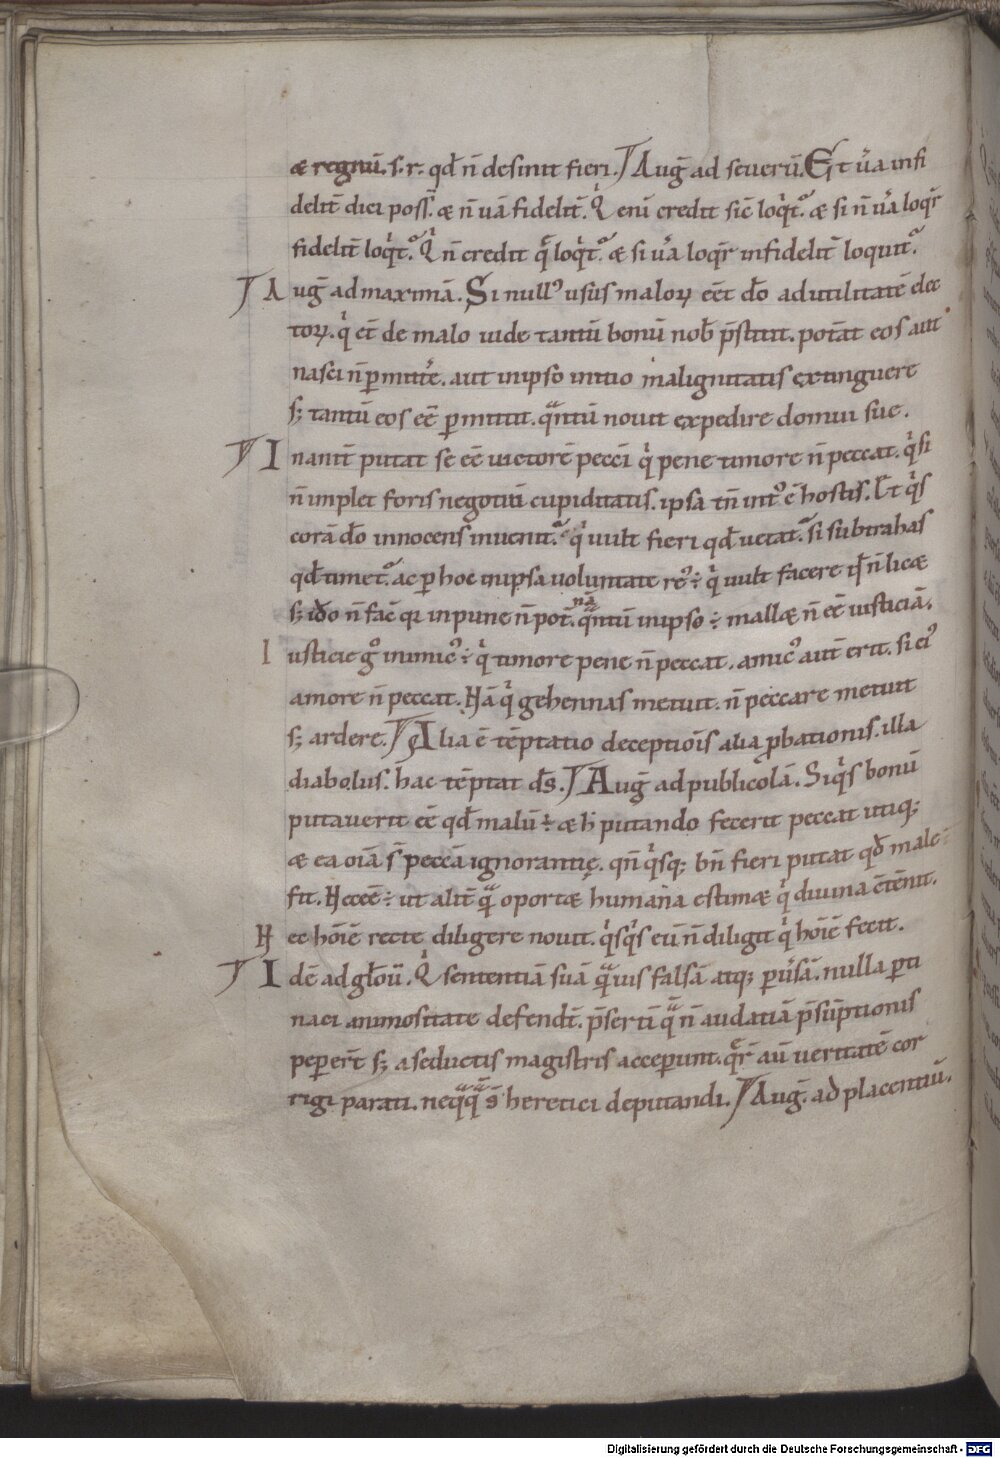 æ regnū. s. r. qd̄ n̄ desinit fieri. Auḡ ad seuerū. Et ua infi
delit̄ dici poss̄. æ n̄ uā fidelit̄. Q eni credit sic̄ loqt̄. æ si n̄ ua loqr̄
fidelit̄ loqt̄. Q n̄ credit q̄ loqt̄. æ si ua loqr̄ infidelit̄ loquit̄.
Auḡ ad maximā. Si nullꝰ usus maloꝝ eēt dō ad utilitatē elec
toꝝ. q et̄ de malo uide tantū bonū nob̄ p̄stitit. potāt eos aut
nasci n̄ pmittere. aut in ipso initio malignitatis extinguere
s; tantū eos eē pmittit. qntū nouit expedire domui sue.
Inanit̄ putat se eē uictorē pecci q pene timore n̄ peccat. q si
n̄ implet foris negotiū cupiditatis. ipsa tn̄ intꝰ ē hostis. Et qs
corā dō innocens inuenit̄. q uult fieri qd̄ uetat̄. si subtrahas
qd̄ timet̄. ac p hoc in ipsa uoluntate reꝰ ÷ q uult facere qd̄ n̄ licæ
s; idō n̄ fac̄ qꝛ inpune n̄ pot̄. nā qntū in ipso ÷ mallæ n̄ eē iusticiā.
Iusticie gͦ inimicꝰ ÷ q timore pene n̄ peccat. amicꝰ aut̄ erit. si eiꝰ
amore n̄ peccat. Nā q gehennas metuit. n̄ peccare metuit
s; ardere. Alia ē tēptatio deceptiōis alia pbationis. illa
diabolus. hac tēptat ds̄. Auḡ ad publicolā. Siqs bonū
putauerit eē qd̄ malū ÷ æ h̄ putando fecerit peccat utiq;
æ ea oīa s̄ peccā ignorantię. qn̄ qsq; bn̄ fieri putat qd̄ male
fit. Necesē ÷ ut alit̄ quā oportæ humana estimæ q diuina ētēnit.
Nec hoīē recte diligere nouit. qsqs eū n̄ diligit q hoīē fecit.
Idē ad glou. Q sententiā suā quāuis falsā atq; puersā. nulla pti
naci animositate defendt̄. p̄serti quā n̄ audatiā p̄sūptionis
pepert̄ s; a seductis magistris acceperunt. quer̄ au veritatē cor
rigi parati. neqq s̄ heretici deputandi. Auḡ. ad placentiū.
Digitalisierung gefördert durch die Deutsche Forschungsgemeinschaft - DFG